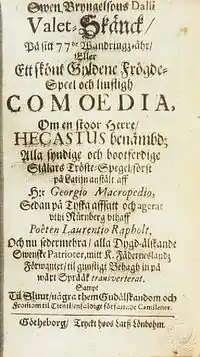 Swen Bryngelsons Dalli
Valet-Skänck/
På sitt 77de Wandringz-åhr/
Eller
Ett skönt Gyldene Frögde-
Speel och liufligh
COMOEDIA,
Om en stoor Herre/
HECASTUS benämbd;
Alla syndige och bootferdige
Siälars Tröste-Spegel/först
på Latijn anstält aff
H:r Georgio Macropedio,
Sedan på Tyska affsatt och agerat
vthi Nürnberg vthaff
Poëten Laurentio Rapholt,
Och nu sedermehra/ alla Dygd-älskande
Swenske Patrioter, mitt K. Fäderneslandz
Förwanter/ til gunstigt Behagh in på
wårt Språåk transverterat.
Sampt
Til Slutut/några them Gudälskandom och
Fromom til Tienst
författade Camilener.
Götheborg/ Tryckt hoos Larß Lönbohm.